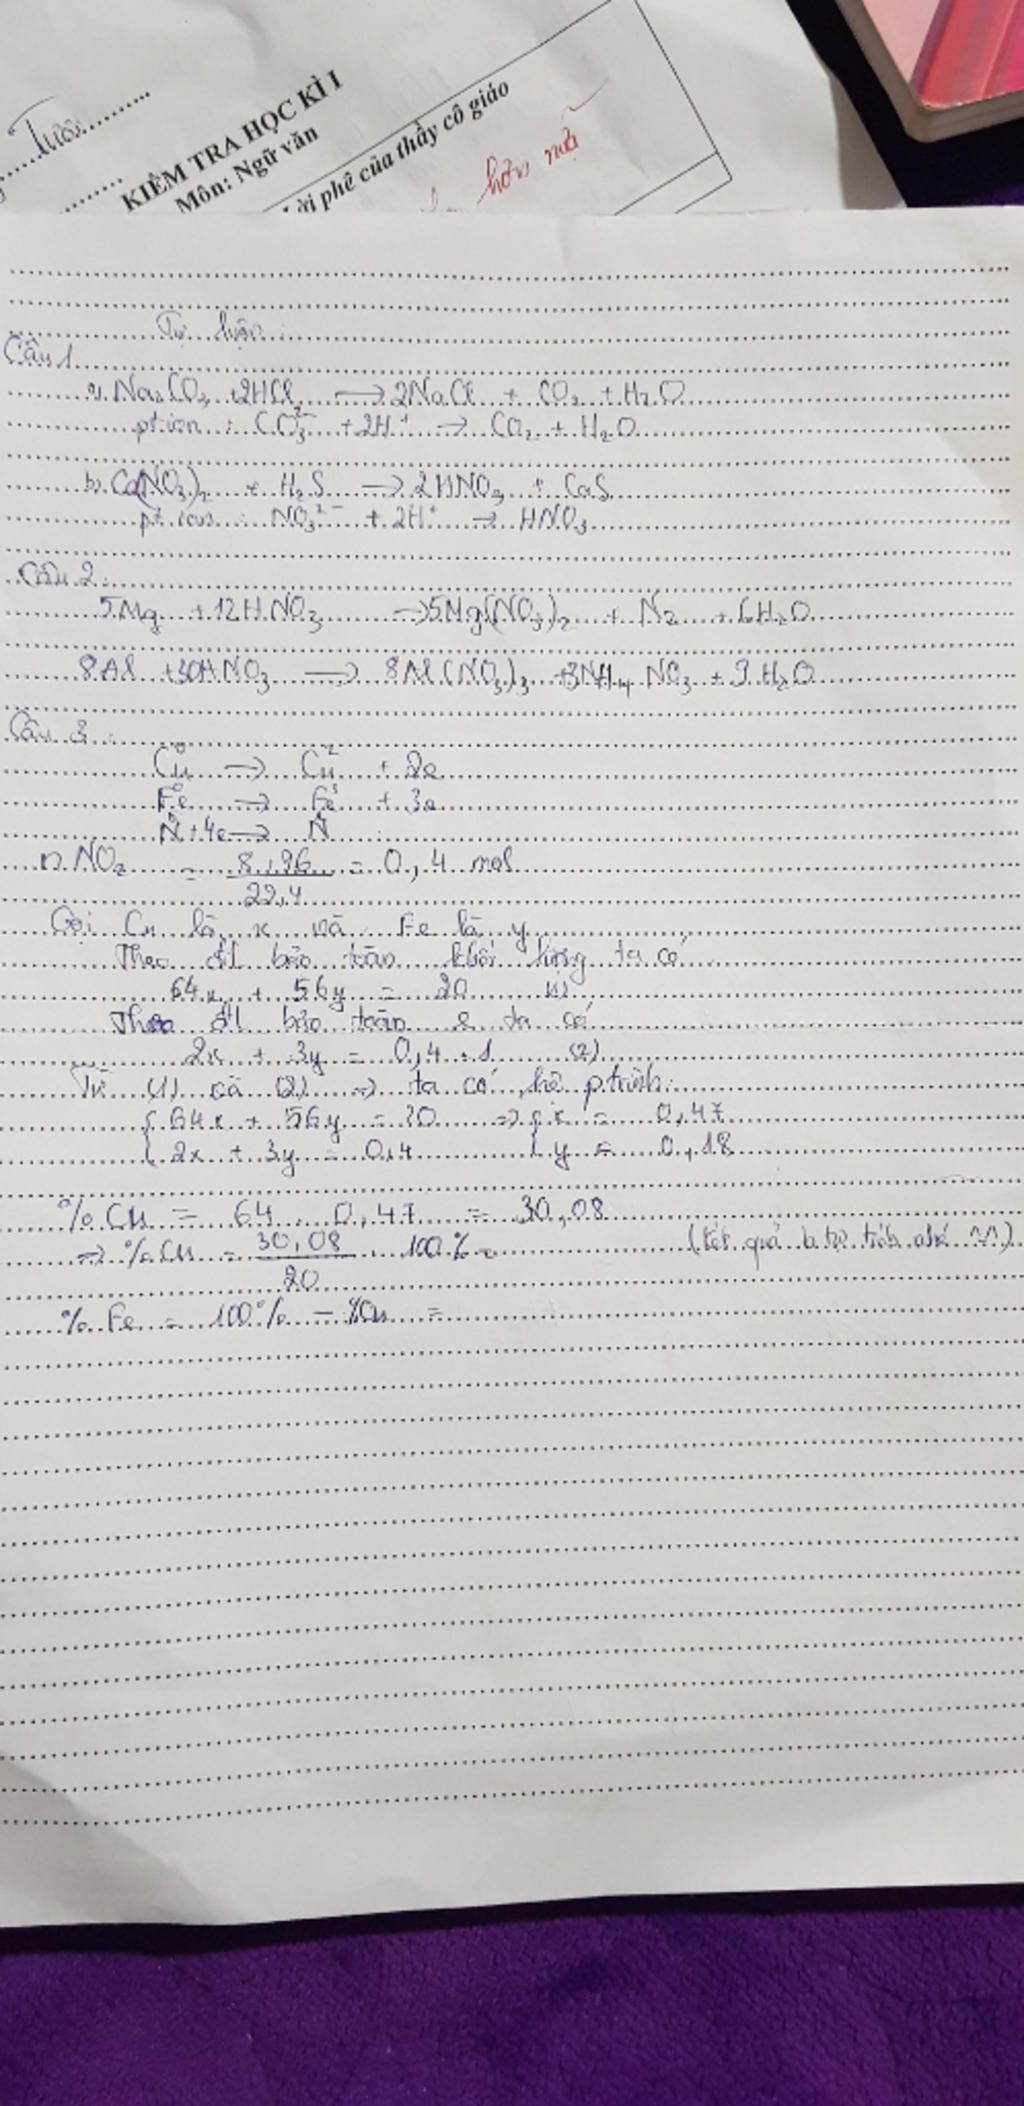 KIỂM TRA HỌC KÌ I
Môn: Ngữ văn
Lời phê của thầy cô giáo
hơn nữa
Tự luận:
Câu 1
a) Na₂CO₃ + 2HCl → 2NaCl + CO₂ + H₂O
pt ion: CO₃²⁻ + 2H⁺ → CO₂ + H₂O
b) Ca(NO₃)₂ + H₂S → 2HNO₃ + CaS
pt ion: NO₃²⁻ + 2H⁺ → HNO₃
Câu 2:
5Mg + 12HNO₃ → 5Mg(NO₃)₂ + N₂ + 6H₂O
8Al + 30HNO₃ → 8Al(NO₃)₃ + 3NH₄NO₃ + 9H₂O
Câu 3:
Cu⁰ → Cu² + 2e
Fe⁰ → Fe³ + 3e
N + 4e → N
nNO₂ = 8,96/22,4 = 0,4 mol
Gọi Cu là x và Fe là y
Theo đl bảo toàn khối lượng ta có
64x + 56y = 20 (1)
Theo đl bảo toàn e ta có
2x + 3y = 0,4 . 1 (2)
Từ (1) và (2) => ta có hệ p.trình:
{ 64x + 56y = 20 => { x = 0,47
{ 2x + 3y = 0,4 { y = 0,18
% Cu = 64 . 0,47 = 30,08
=> % Cu = 30,08/20 . 100% = (kết quả
% Fe = 100% - %Cu =